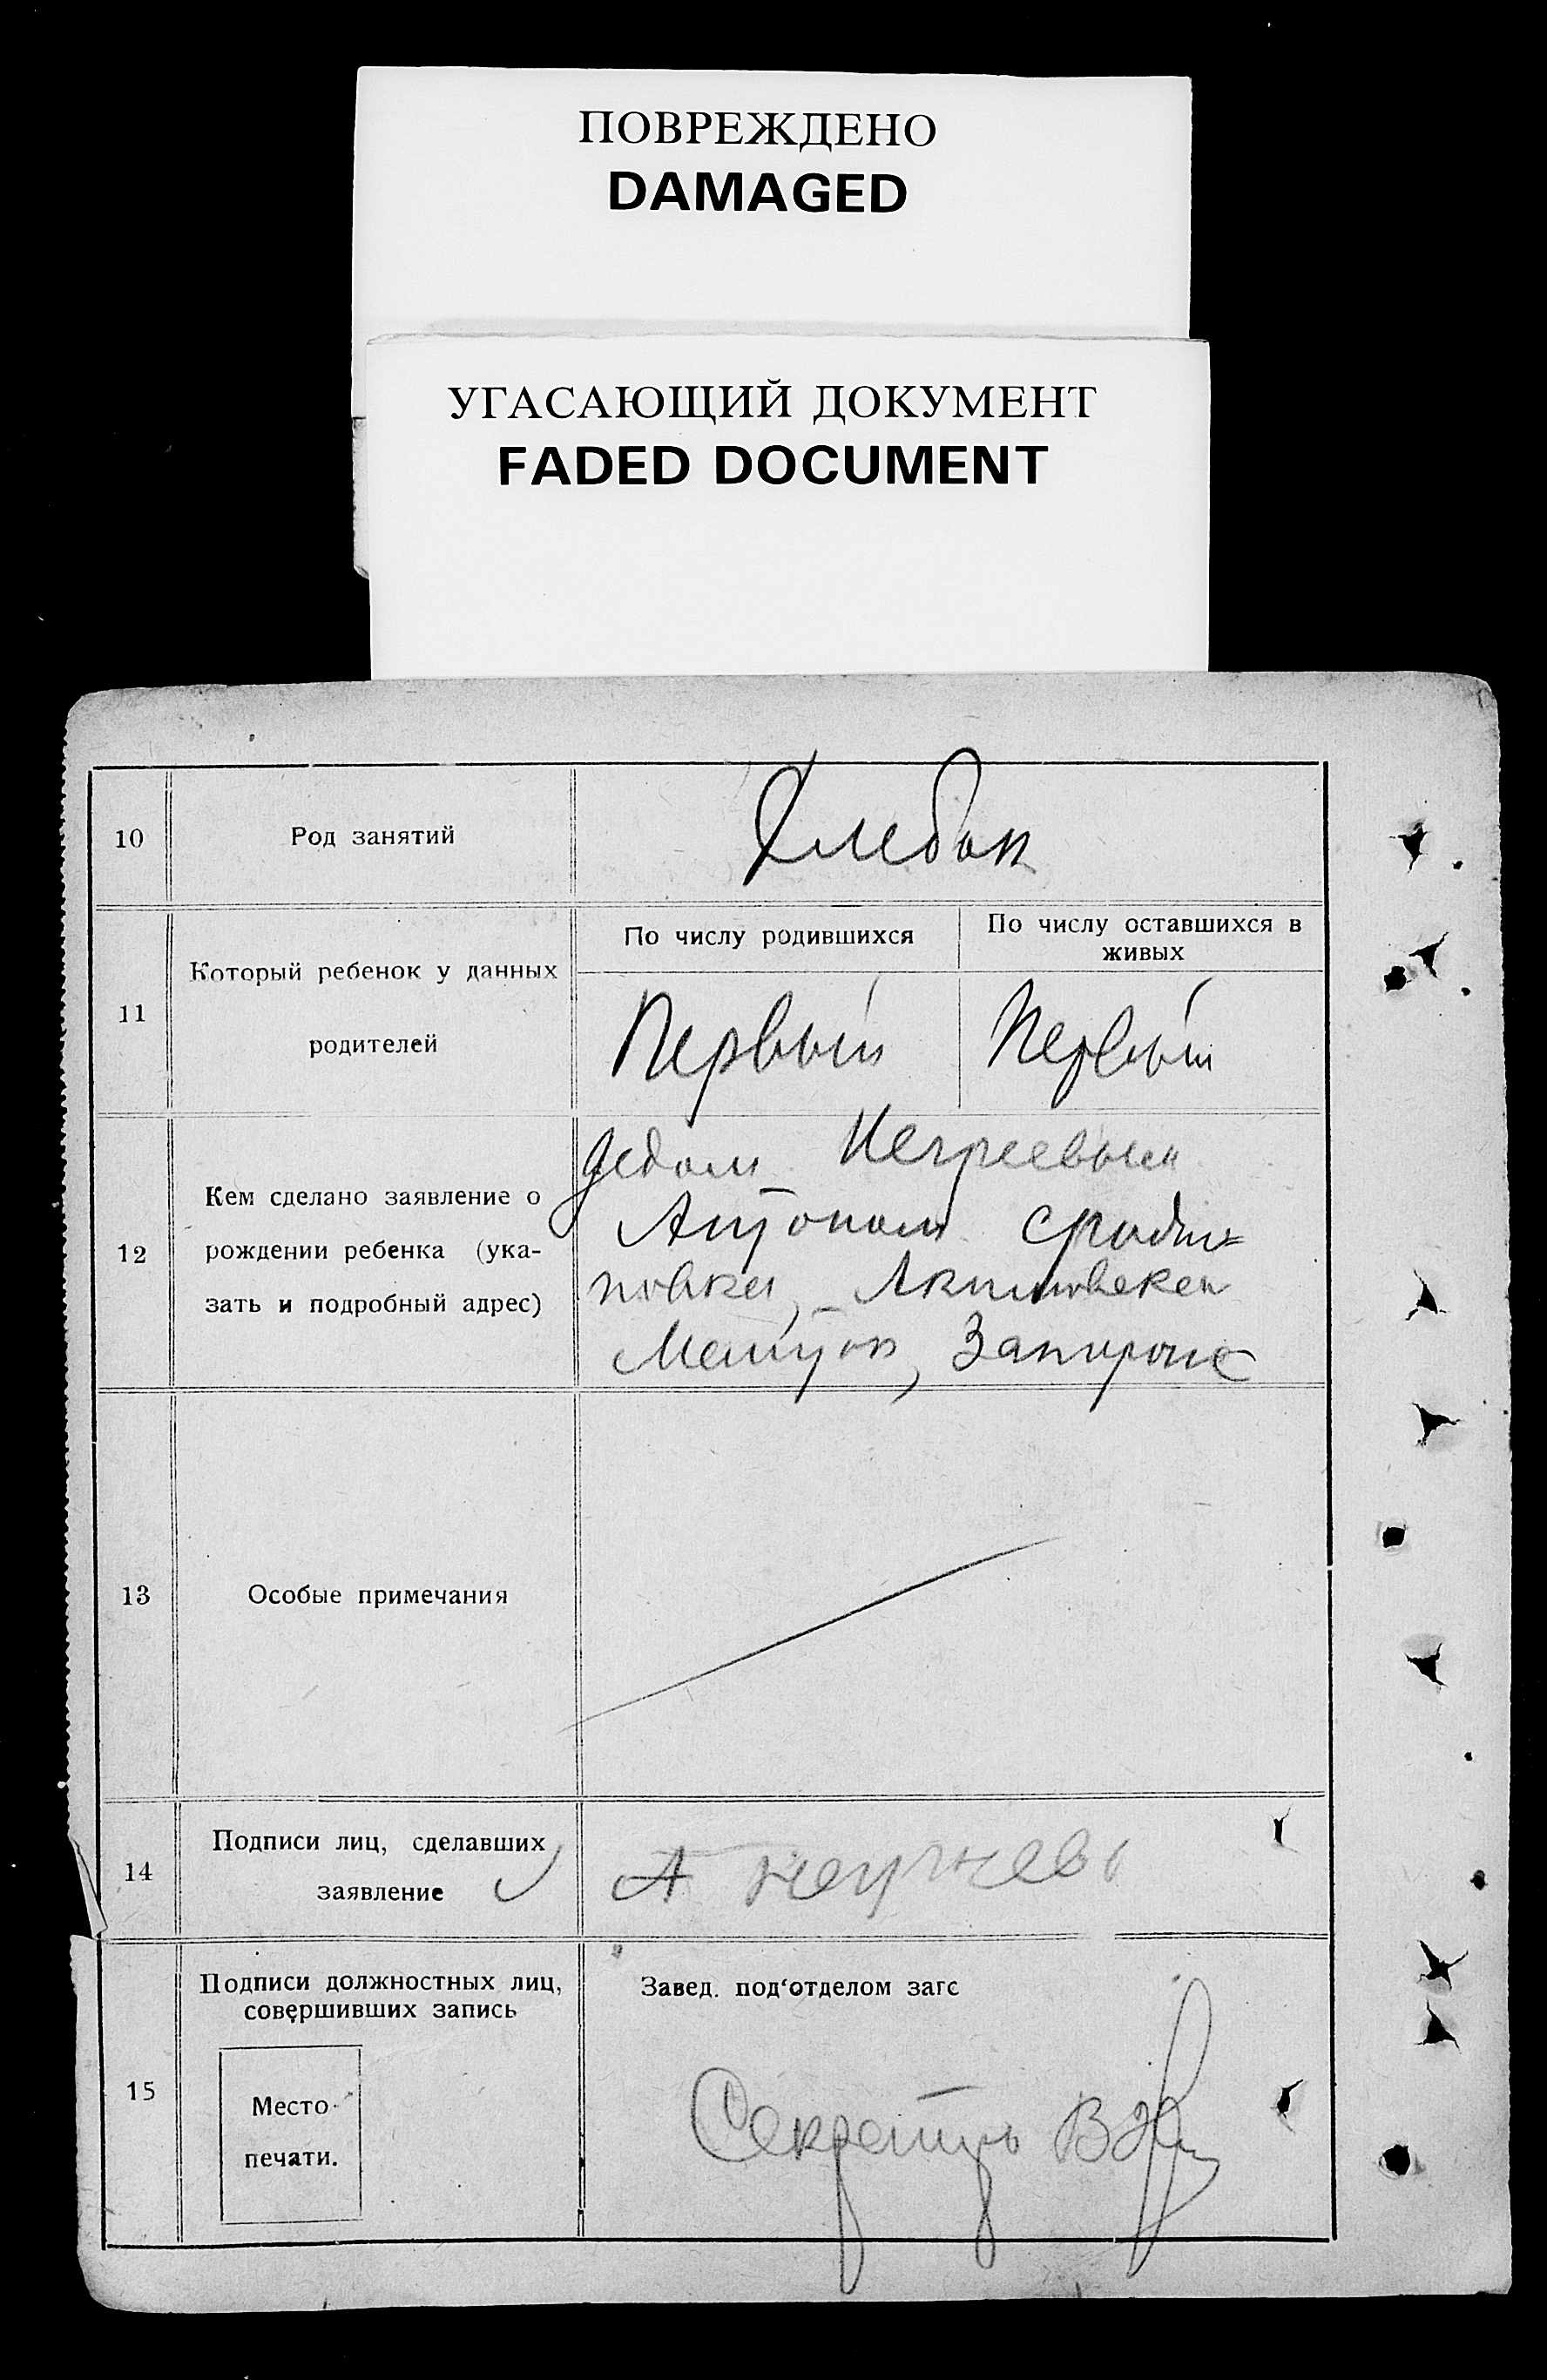 ПОВРЕЖДЕНО
DAMAGED
УГАСАЮЩИЙ ДОКУМЕНТ
FADED DOCUMENT
10
Род занятий
Хлебоп
11
Который ребенок у данных
родителей
По числу родившихся
По числу оставшихся в
живых
Первый
Первый
12
Кем сделано заявление о
рождении ребенка (ука-
зать и подробный адрес)
Дедом
Антоном
Запорож
13
Особые примечания
14
Подписи лиц, сделавших
заявление
А
15
Подписи должностных лиц,
совершивших запись
Место
печати.
Завед. под'отделом загс
Секретарь